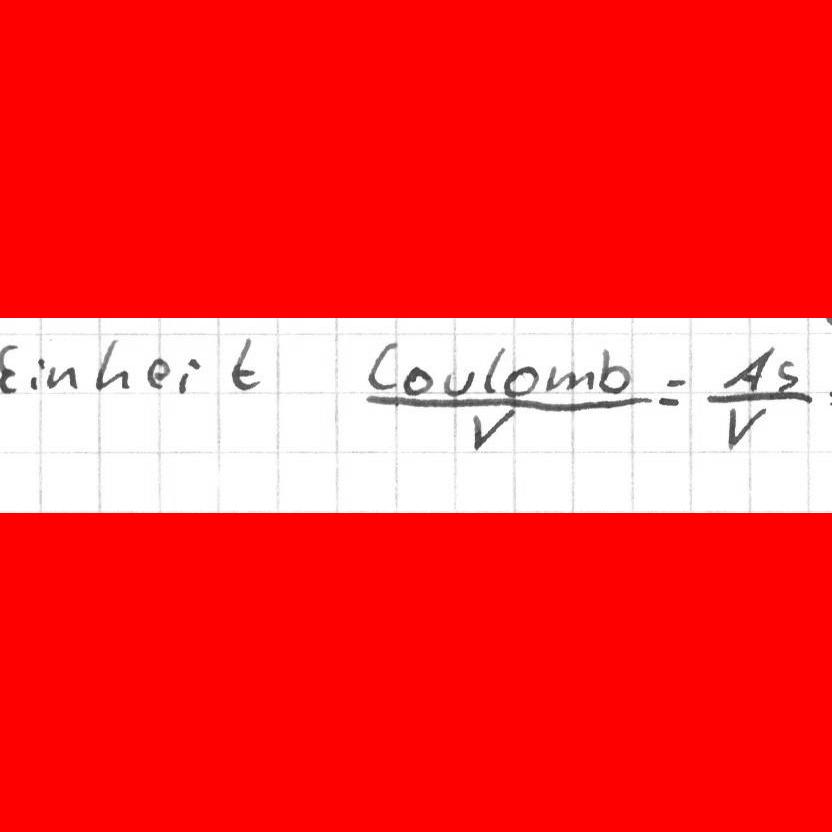 Einheit Coulomb/V = As/V